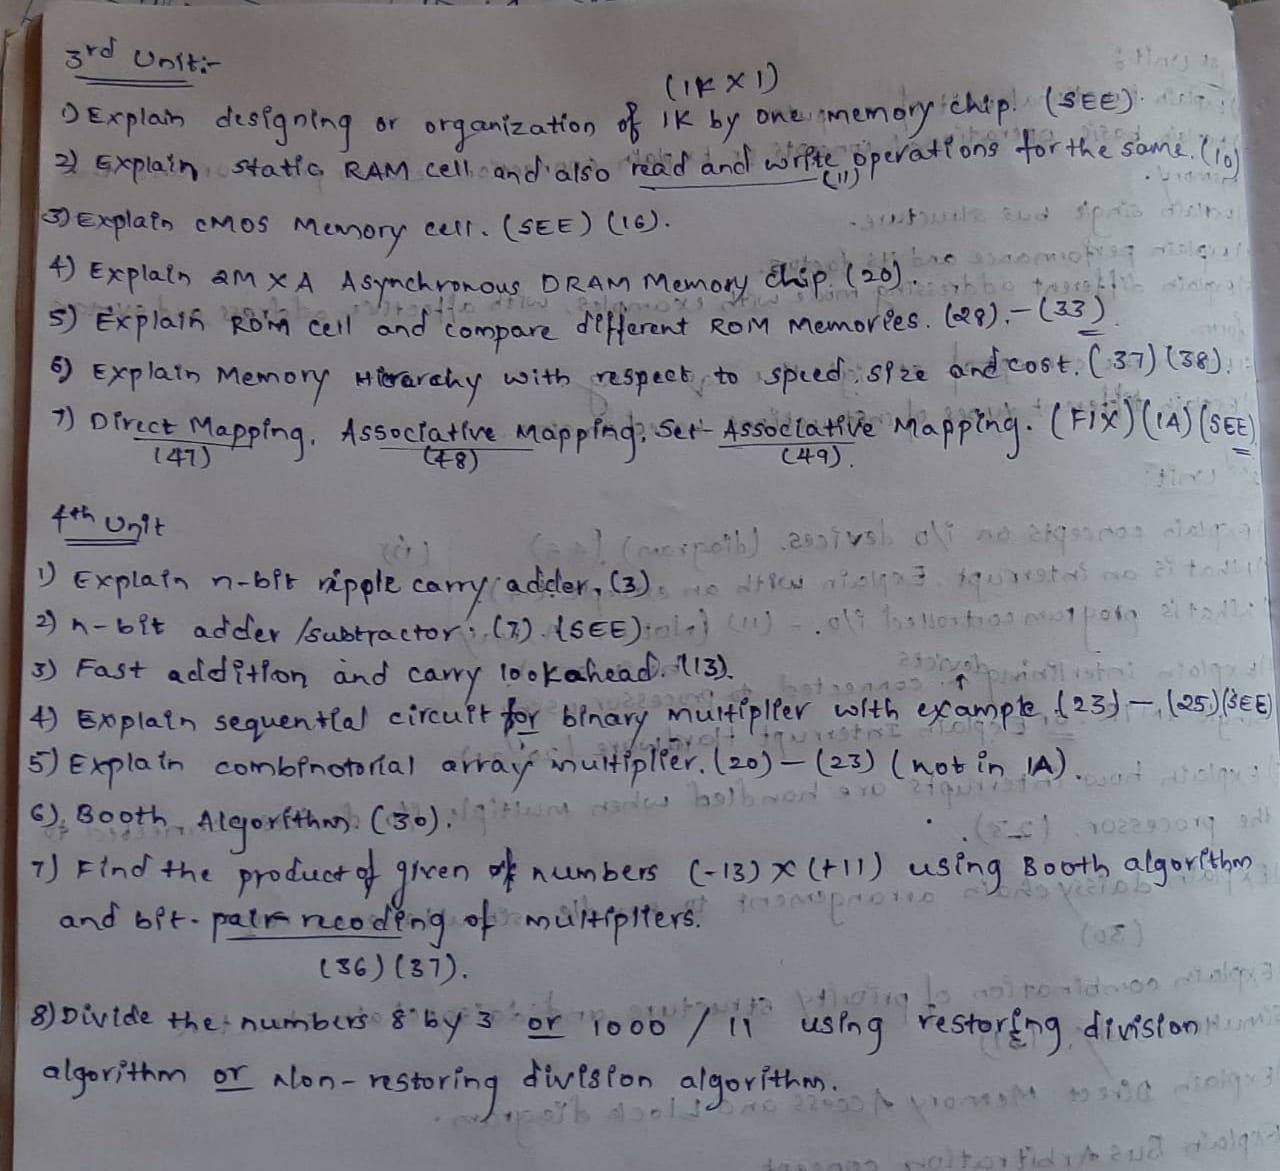 3rd Unit:-
(1K X 1)
1) Explain designing or organization of 1K by one memory chip. (SEE).
2) Explain static RAM cell and also read and write operations for the same. (10)
(11)
3) Explain CMOS Memory cell. (SEE) (16).
4) Explain 2M X A Asynchronous DRAM Memory chip. (20).
5) Explain ROM cell and compare different ROM Memories. (29).-(33)
6) Explain Memory Hierarchy with respect to speed, size and cost. (37) (38).
7) Direct Mapping, Associative Mapping, Set-Associative Mapping. (FIX) (IA) (SEE)
(47) (48) (49).
4th Unit
1) Explain n-bit ripple carry adder, (3).
2) n-bit adder /subtractor. (7). (SEE)
3) Fast addition and carry lookahead. (13).
4) Explain sequential circuit for binary multiplier with example (23) - (25) (SEE)
5) Explain combinotorial array multiplier. (20) - (23) (not in IA).
6) Booth Algorithm. (30).
7) Find the product of given of numbers (-13) X (+11) using Booth algorithm
and bit-pair recoding of multipliers.
(36) (37).
8) Divide the numbers 8 by 3 or 1000 / 11 using restoring division
algorithm or Non-restoring division algorithm.